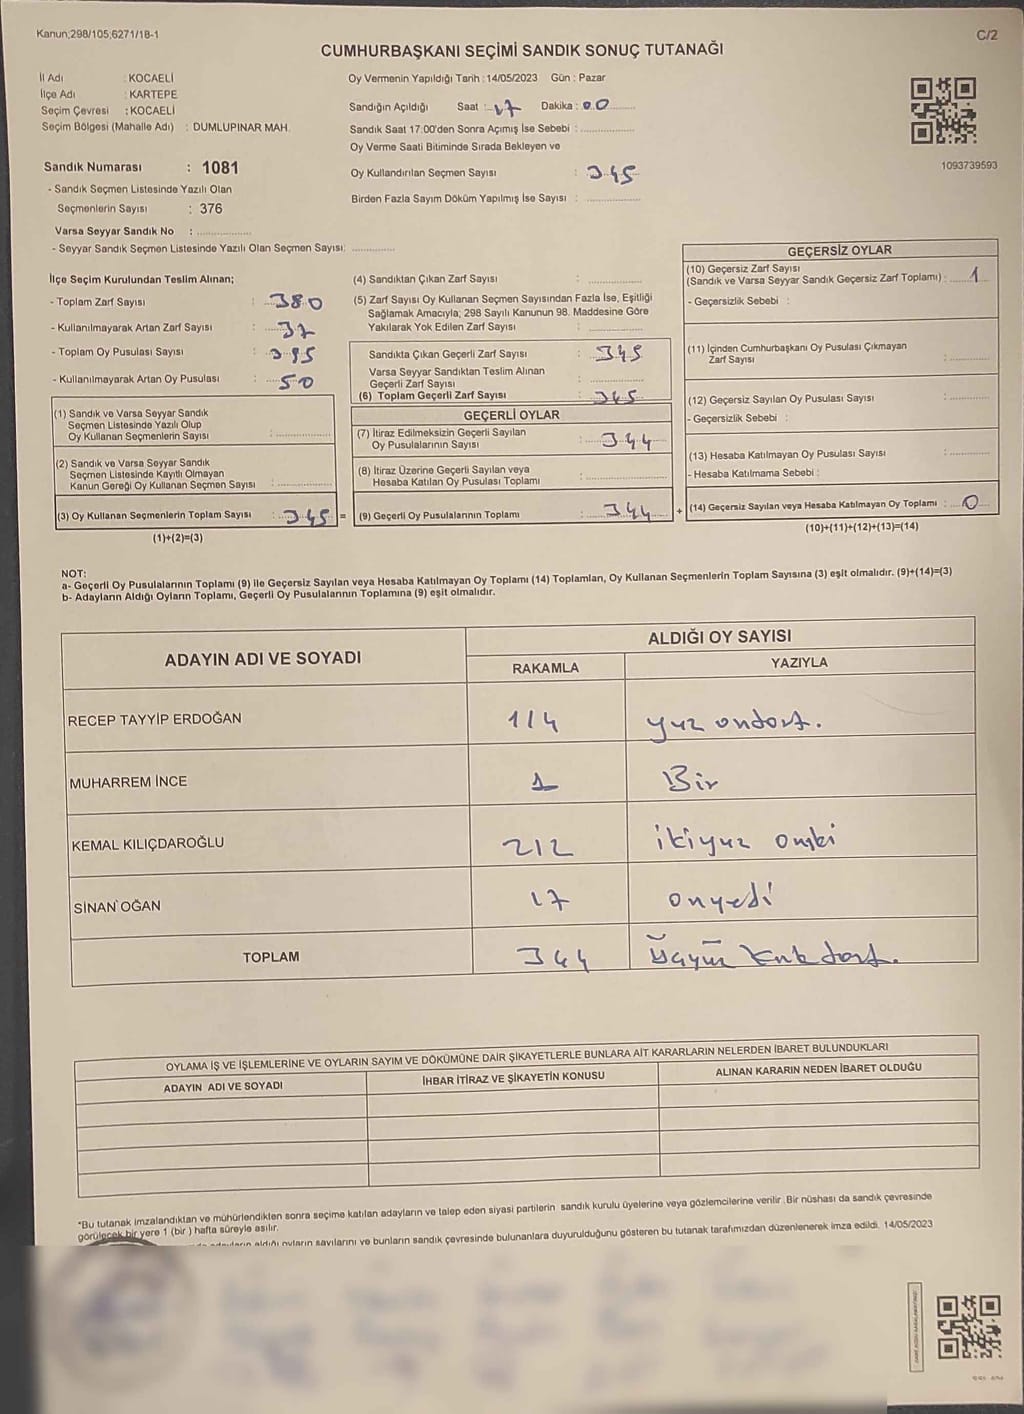 Kanun;298/105,6271/18-1
C/2
CUMHURBAŞKANI SEÇİMİ SANDIK SONUÇ TUTANAĞI
İl Adı : KOCAELİ
İlçe Adı : KARTEPE
Seçim Çevresi : KOCAELİ
Seçim Bölgesi (Mahalle Adı) : DUMLUPINAR MAH.
Oy Vermenin Yapıldığı Tarih : 14/05/2023 Gün : Pazar
Sandığın Açıldığı Saat : 17 Dakika : 00
Sandık Saat 17.00'den Sonra Açımış İse Sebebi :
Oy Verme Saati Bitiminde Sırada Bekleyen ve
Oy Kullandırılan Seçmen Sayısı : 345
Birden Fazla Sayım Döküm Yapılmış İse Sayısı :
1093739593
Sandık Numarası : 1081
- Sandık Seçmen Listesinde Yazılı Olan
Seçmenlerin Sayısı : 376
Varsa Seyyar Sandık No :
- Seyyar Sandık Seçmen Listesinde Yazılı Olan Seçmen Sayısı:
İlçe Seçim Kurulundan Teslim Alınan;
- Toplam Zarf Sayısı : 380
- Kullanılmayarak Artan Zarf Sayısı : 37
- Toplam Oy Pusulası Sayısı : 395
- Kullanılmayarak Artan Oy Pusulası : 50
(1) Sandık ve Varsa Seyyar Sandık
Seçmen Listesinde Yazılı Olup
Oy Kullanan Seçmenlerin Sayısı :
(2) Sandık ve Varsa Seyyar Sandık
Seçmen Listesinde Kayıtlı Olmayan
Kanun Gereği Oy Kullanan Seçmen Sayısı :
(3) Oy Kullanan Seçmenlerin Toplam Sayısı : 345 =
(1)+(2)=(3)
(4) Sandıktan Çıkan Zarf Sayısı :
(5) Zarf Sayısı Oy Kullanan Seçmen Sayısından Fazla İse, Eşitliği
Sağlamak Amacıyla; 298 Sayılı Kanunun 98. Maddesine Göre
Yakılarak Yok Edilen Zarf Sayısı :
Sandıkta Çıkan Geçerli Zarf Sayısı : 345
Varsa Seyyar Sandıktan Teslim Alınan
Geçerli Zarf Sayısı :
(6) Toplam Geçerli Zarf Sayısı : 345
GEÇERLİ OYLAR
(7) İtiraz Edilmeksizin Geçerli Sayılan
Oy Pusulalarının Sayısı : 344
(8) İtiraz Üzerine Geçerli Sayılan veya
Hesaba Katılan Oy Pusulası Toplamı :
(9) Geçerli Oy Pusulalarının Toplamı : 344 +
GEÇERSİZ OYLAR
(10) Geçersiz Zarf Sayısı
(Sandık ve Varsa Seyyar Sandık Geçersiz Zarf Toplamı) : 1
- Geçersizlik Sebebi :
(11) İçinden Cumhurbaşkanı Oy Pusulası Çıkmayan
Zarf Sayısı :
(12) Geçersiz Sayılan Oy Pusulası Sayısı :
- Geçersizlik Sebebi :
(13) Hesaba Katılmayan Oy Pusulası Sayısı :
- Hesaba Katılmama Sebebi :
(14) Geçersiz Sayılan veya Hesaba Katılmayan Oy Toplamı : 0
(10)+(11)+(12)+(13)=(14)
NOT:
a- Geçerli Oy Pusulalarının Toplamı (9) ile Geçersiz Sayılan veya Hesaba Katılmayan Oy Toplamı (14) Toplamları, Oy Kullanan Seçmenlerin Toplam Sayısına (3) eşit olmalıdır. (9)+(14)=(3)
b- Adayların Aldığı Oyların Toplamı, Geçerli Oy Pusulalarının Toplamına (9) eşit olmalıdır.
ADAYIN ADI VE SOYADI ALDIĞI OY SAYISI
RAKAMLA YAZIYLA
RECEP TAYYİP ERDOĞAN 114 yuz ondort.
MUHARREM İNCE 1 Bir
KEMAL KILIÇDAROĞLU 212 ikiyuz oniki
SİNAN OĞAN 17 onyedi
TOPLAM 344 üçyüz kırk dort.
OYLAMA İŞ VE İŞLEMLERİNE VE OYLARIN SAYIM VE DÖKÜMÜNE DAİR ŞİKAYETLERLE BUNLARA AİT KARARLARIN NELERDEN İBARET BULUNDUKLARI
ADAYIN ADI VE SOYADI İHBAR İTİRAZ VE ŞİKAYETİN KONUSU ALINAN KARARIN NEDEN İBARET OLDUĞU
*Bu tutanak imzalandıktan ve mühürlendikten sonra seçime katılan adayların ve talep eden siyasi partilerin sandık kurulu üyelerine veya gözlemcilerine verilir. Bir nüshası da sandık çevresinde
görülecek bir yere 1 (bir) hafta süreyle asılır.
aldığı oyların sayılarını ve bunların sandık çevresinde bulunanlara duyurulduğunu gösteren bu tutanak tarafımızdan düzenlenerek imza edildi. 14/05/2023